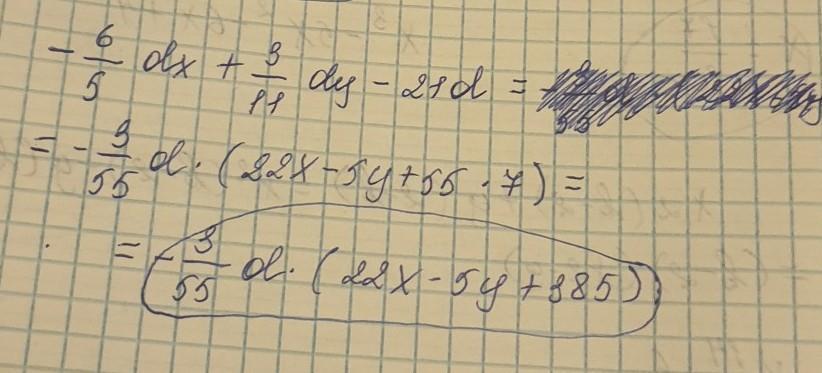 - 6/5 dx + 3/11 dy - 21d =
= - 3/55 d · (22x - 5y + 55 · 7) =
= - 3/55 d · (22x - 5y + 385)